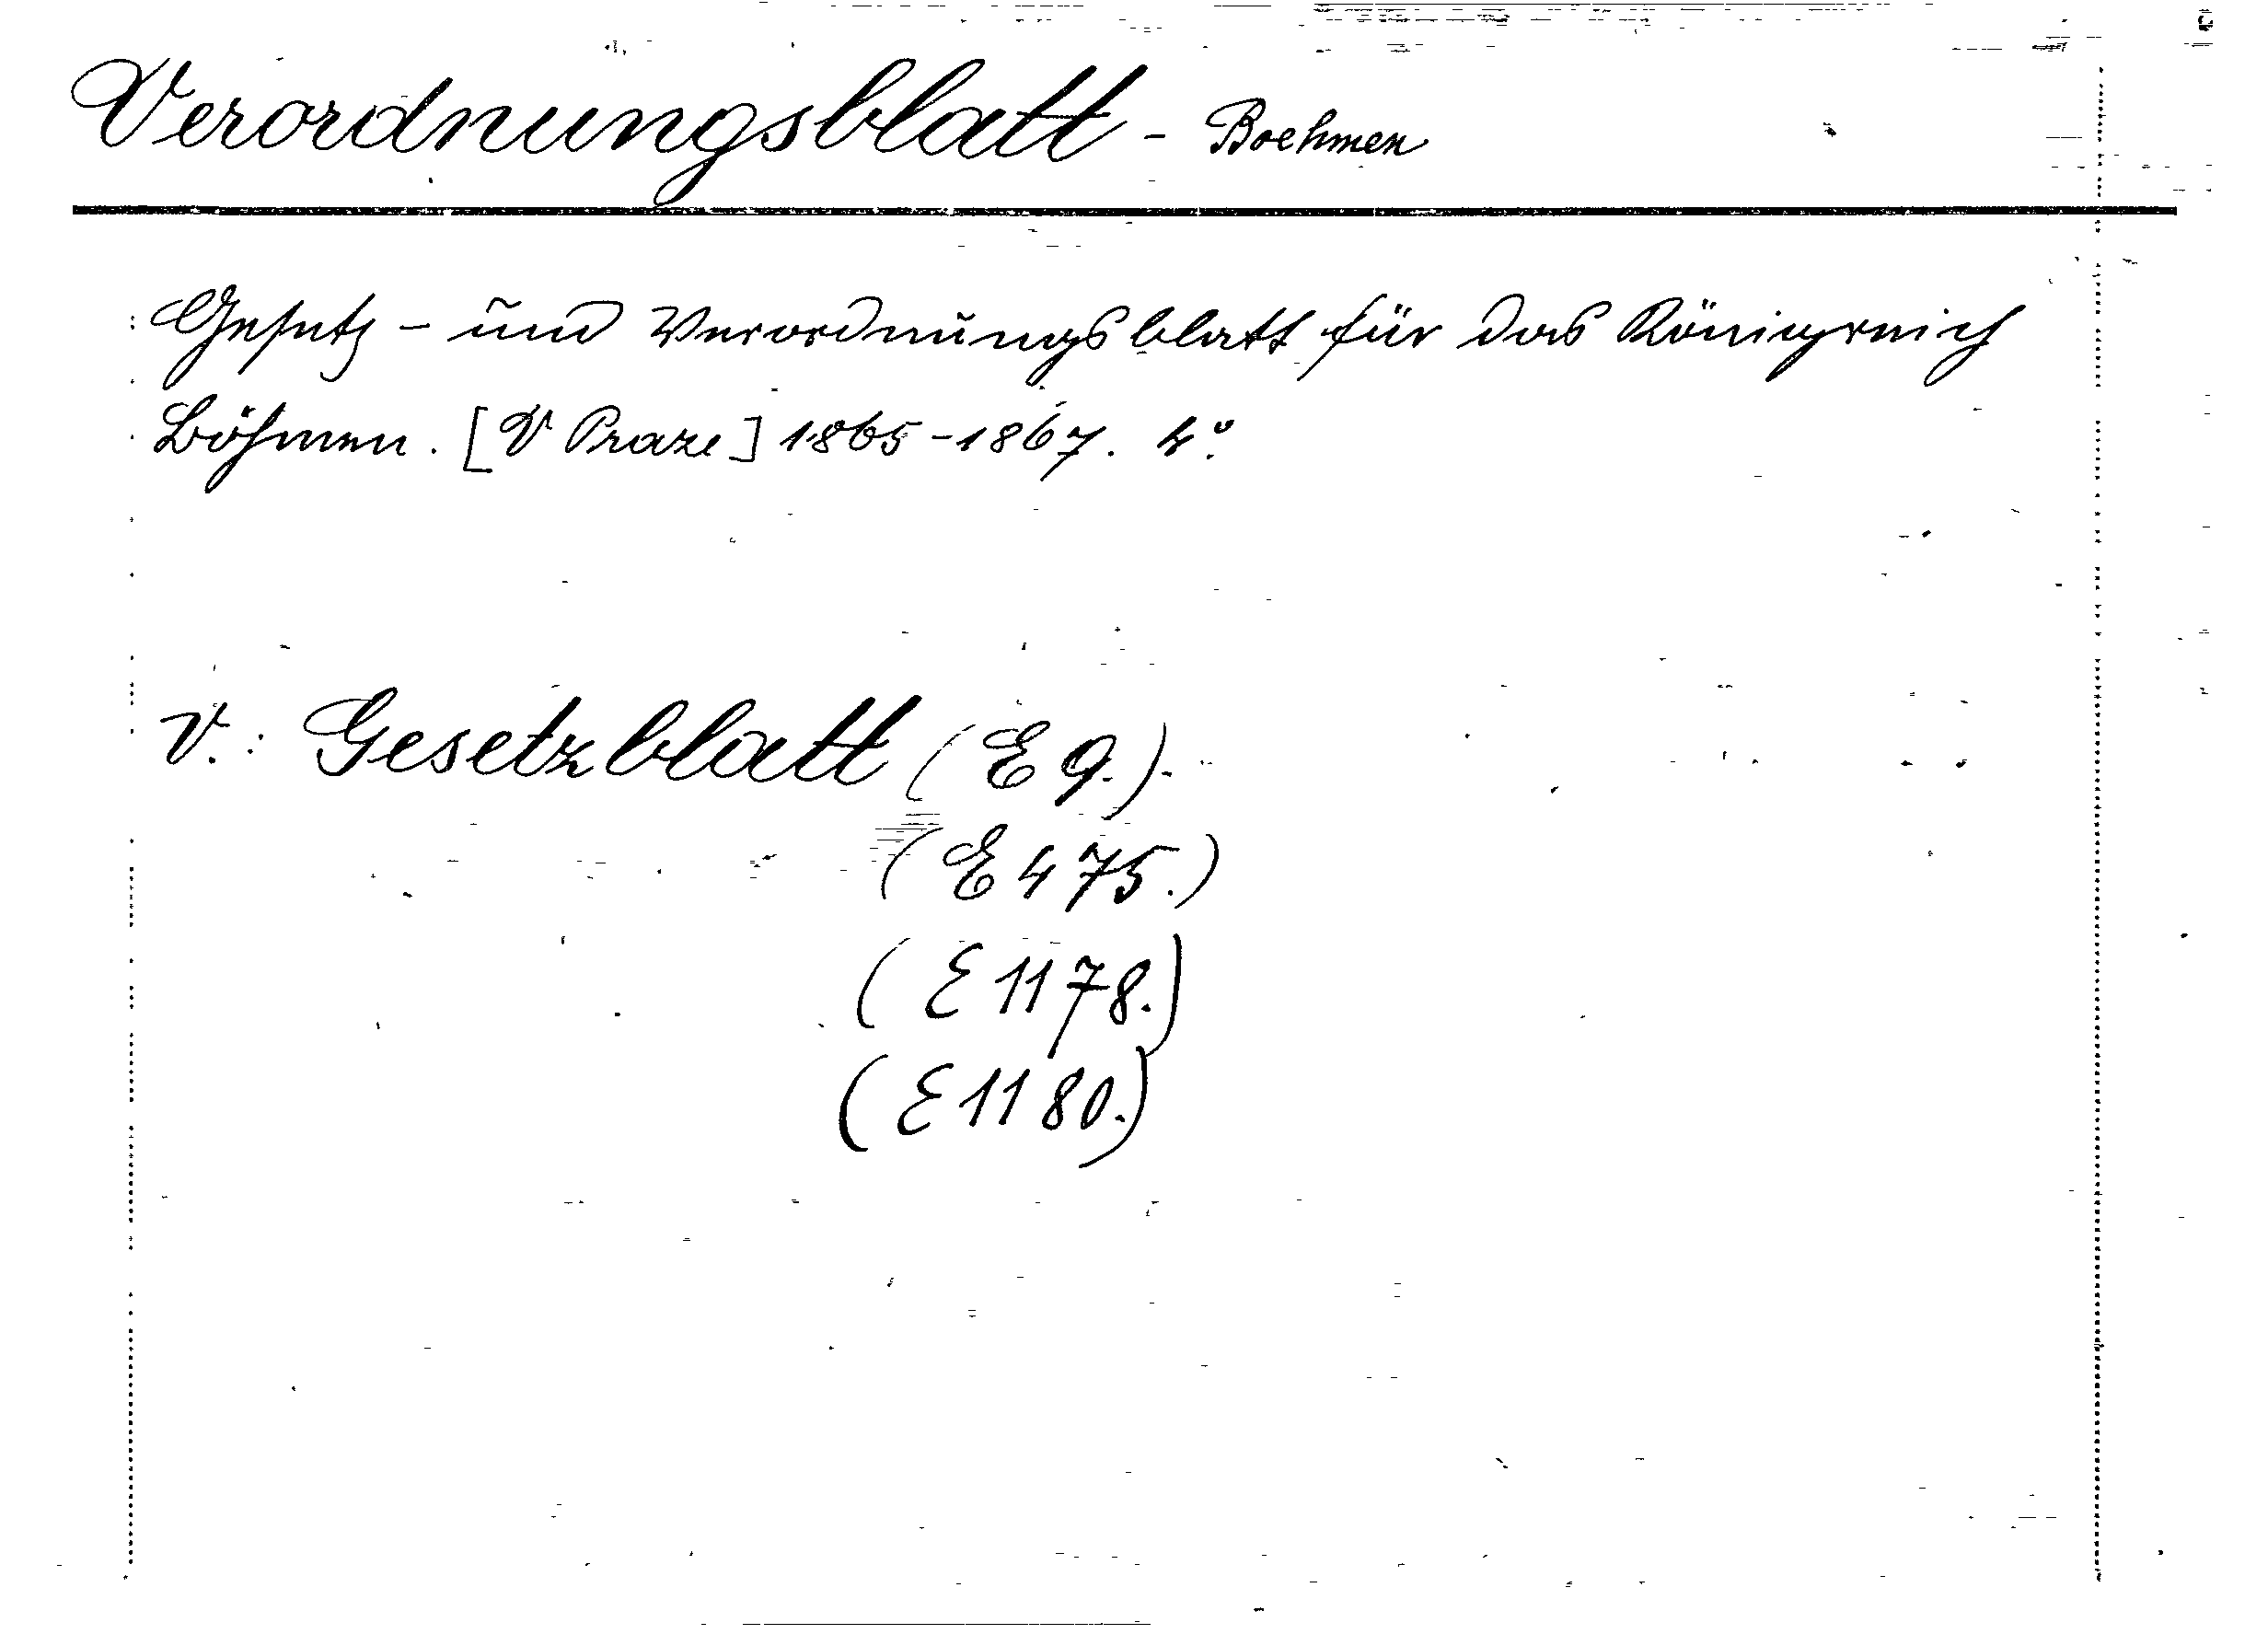 Verordnungsblatt - Boehmen
Gesetz- und Verordnungsblatt für das Königreich
Böhmen. [V Praze] 1865-1867. 4°.
v.: Gesetzblatt (E 9.).
(E 475.)
(E 1178.)
(E 1180.)